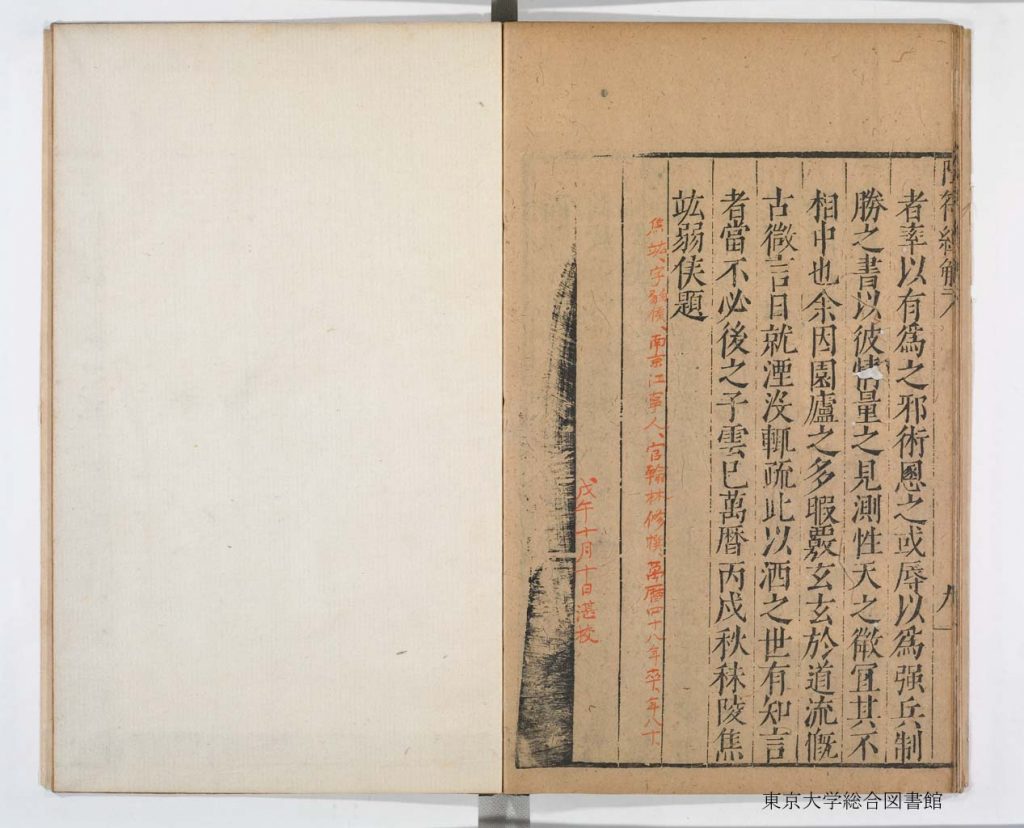 陰符經解
九
者率以有爲之邪術恩之或辱以爲强兵制
勝之書以彼情量之見測性天之微宜其不
相中也余因園廬之多暇覈玄玄於道流慨
古微言日就湮没輒疏此以洒之世有知言
者當不必後之子雲巳萬曆丙戌秋秣陵焦
竑弱侯題
焦竑、字弱侯、南京江寧人、官翰林修撰、萬曆四十八年卒、年八十、
戊午十月十日湛校
東京大学総合図書館